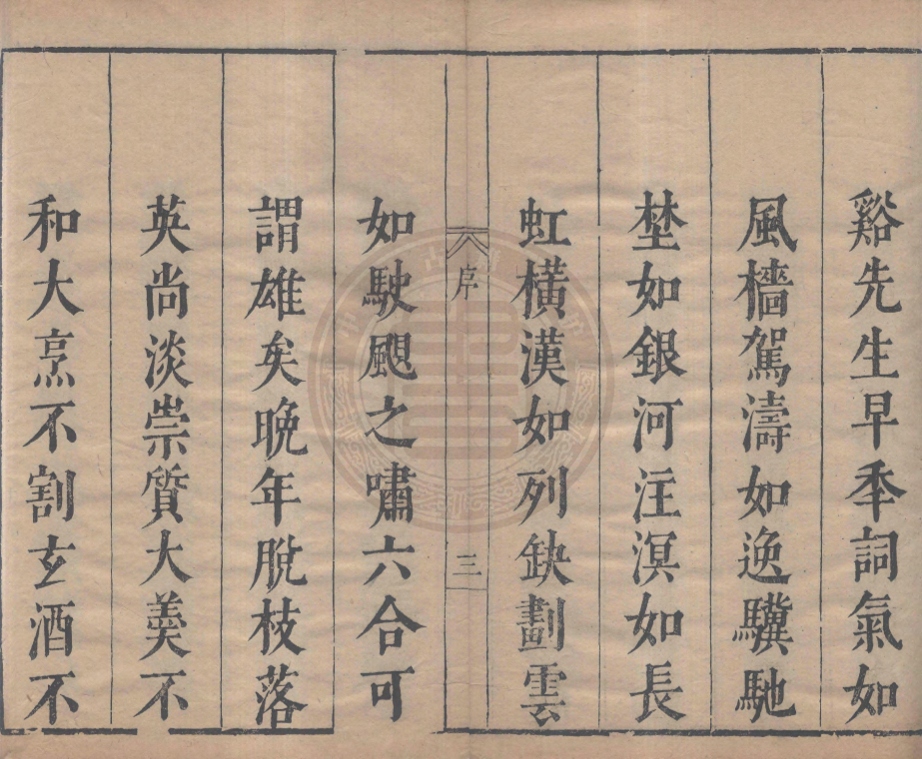 谿先生早年詞氣如
風檣駕濤如逸驥馳
埜如銀河注溟如長
虹橫漢如列缺劃雲
序
三
如駛颶之嘯六合可
謂雄矣晩年脫枝落
英尚淡崇質大羮不
和大烹不割玄酒不